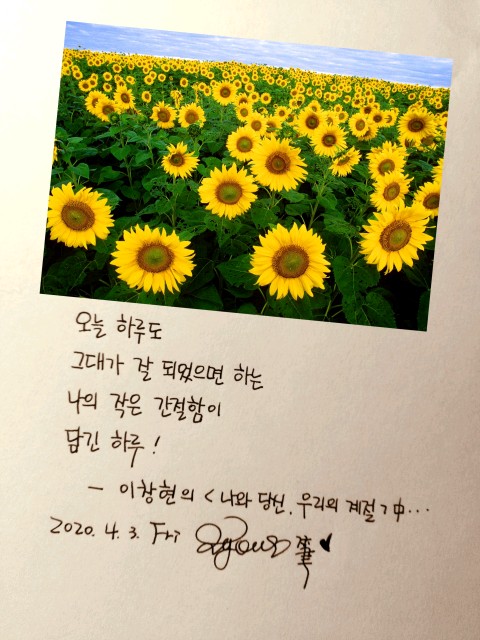 오늘 하루도
그대가 잘 되었으면 하는
나의 작은 간절함이
담긴 하루!
- 이창현의 <나와 당신, 우리의 계절>中...
2020. 4. 3. Fri